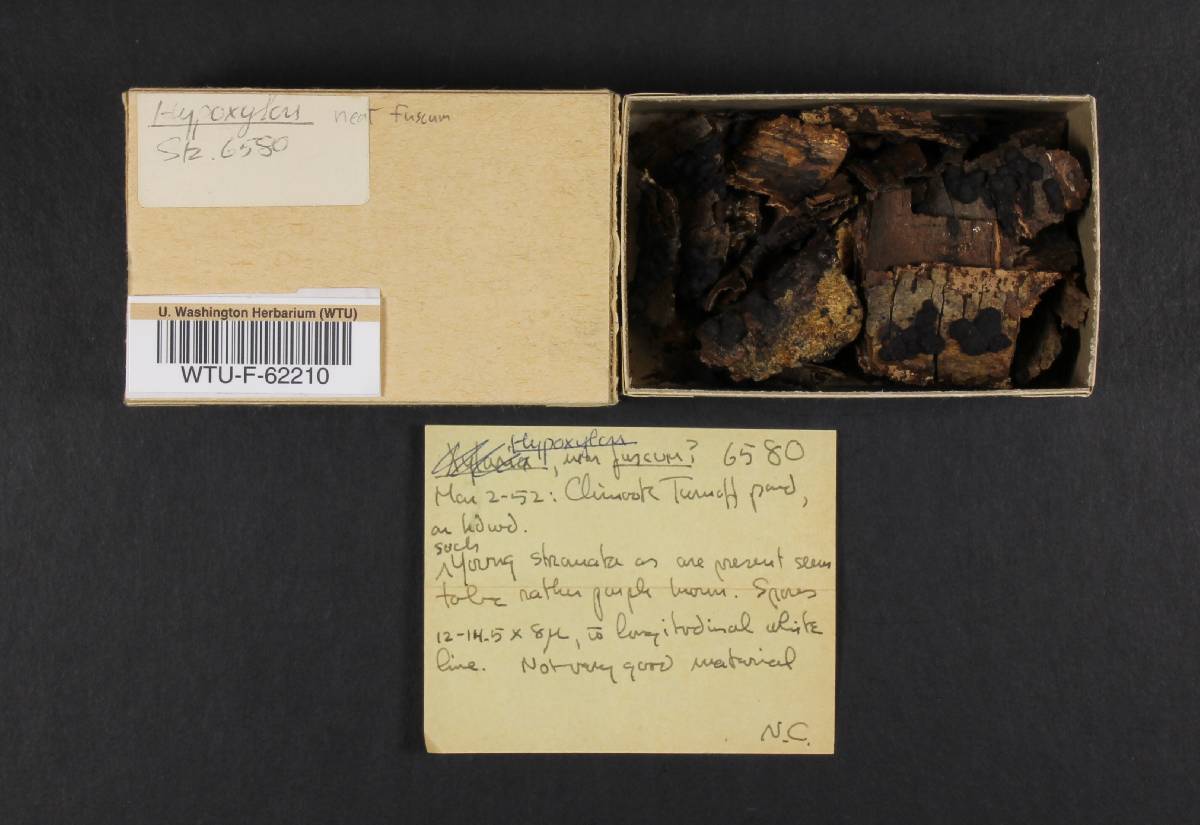 Hypoxylon near fuscum
Stz. 6580
U. Washington Herbarium (WTU)
WTU-F-62210
Hypoxylon
Xylaria, near fuscum? 6580
Mar 2-52: Turnoff pond,
on hdwd.
such
Young stromata as are present seem
to be rather purple brown. Spores
12-14.5 x 8μ, longitudinal white
line. Not very good material
N.C.